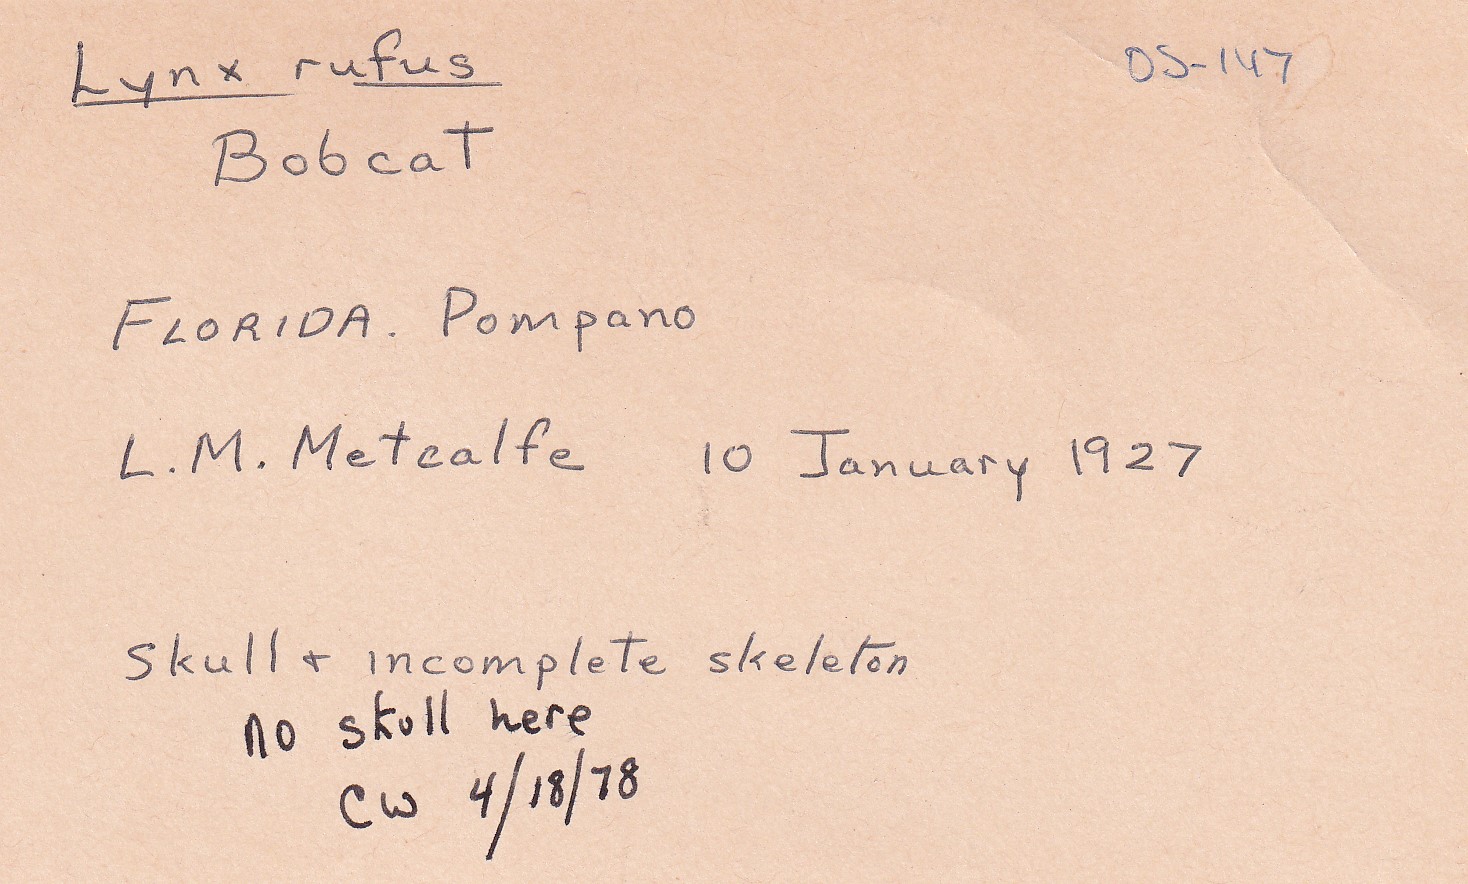 Lynx rufus OS-147
Bobcat
FLORIDA. Pompano
L.M. Metcalfe 10 January 1927
Skull + incomplete skeleton
no skull here
CW 4/18/78